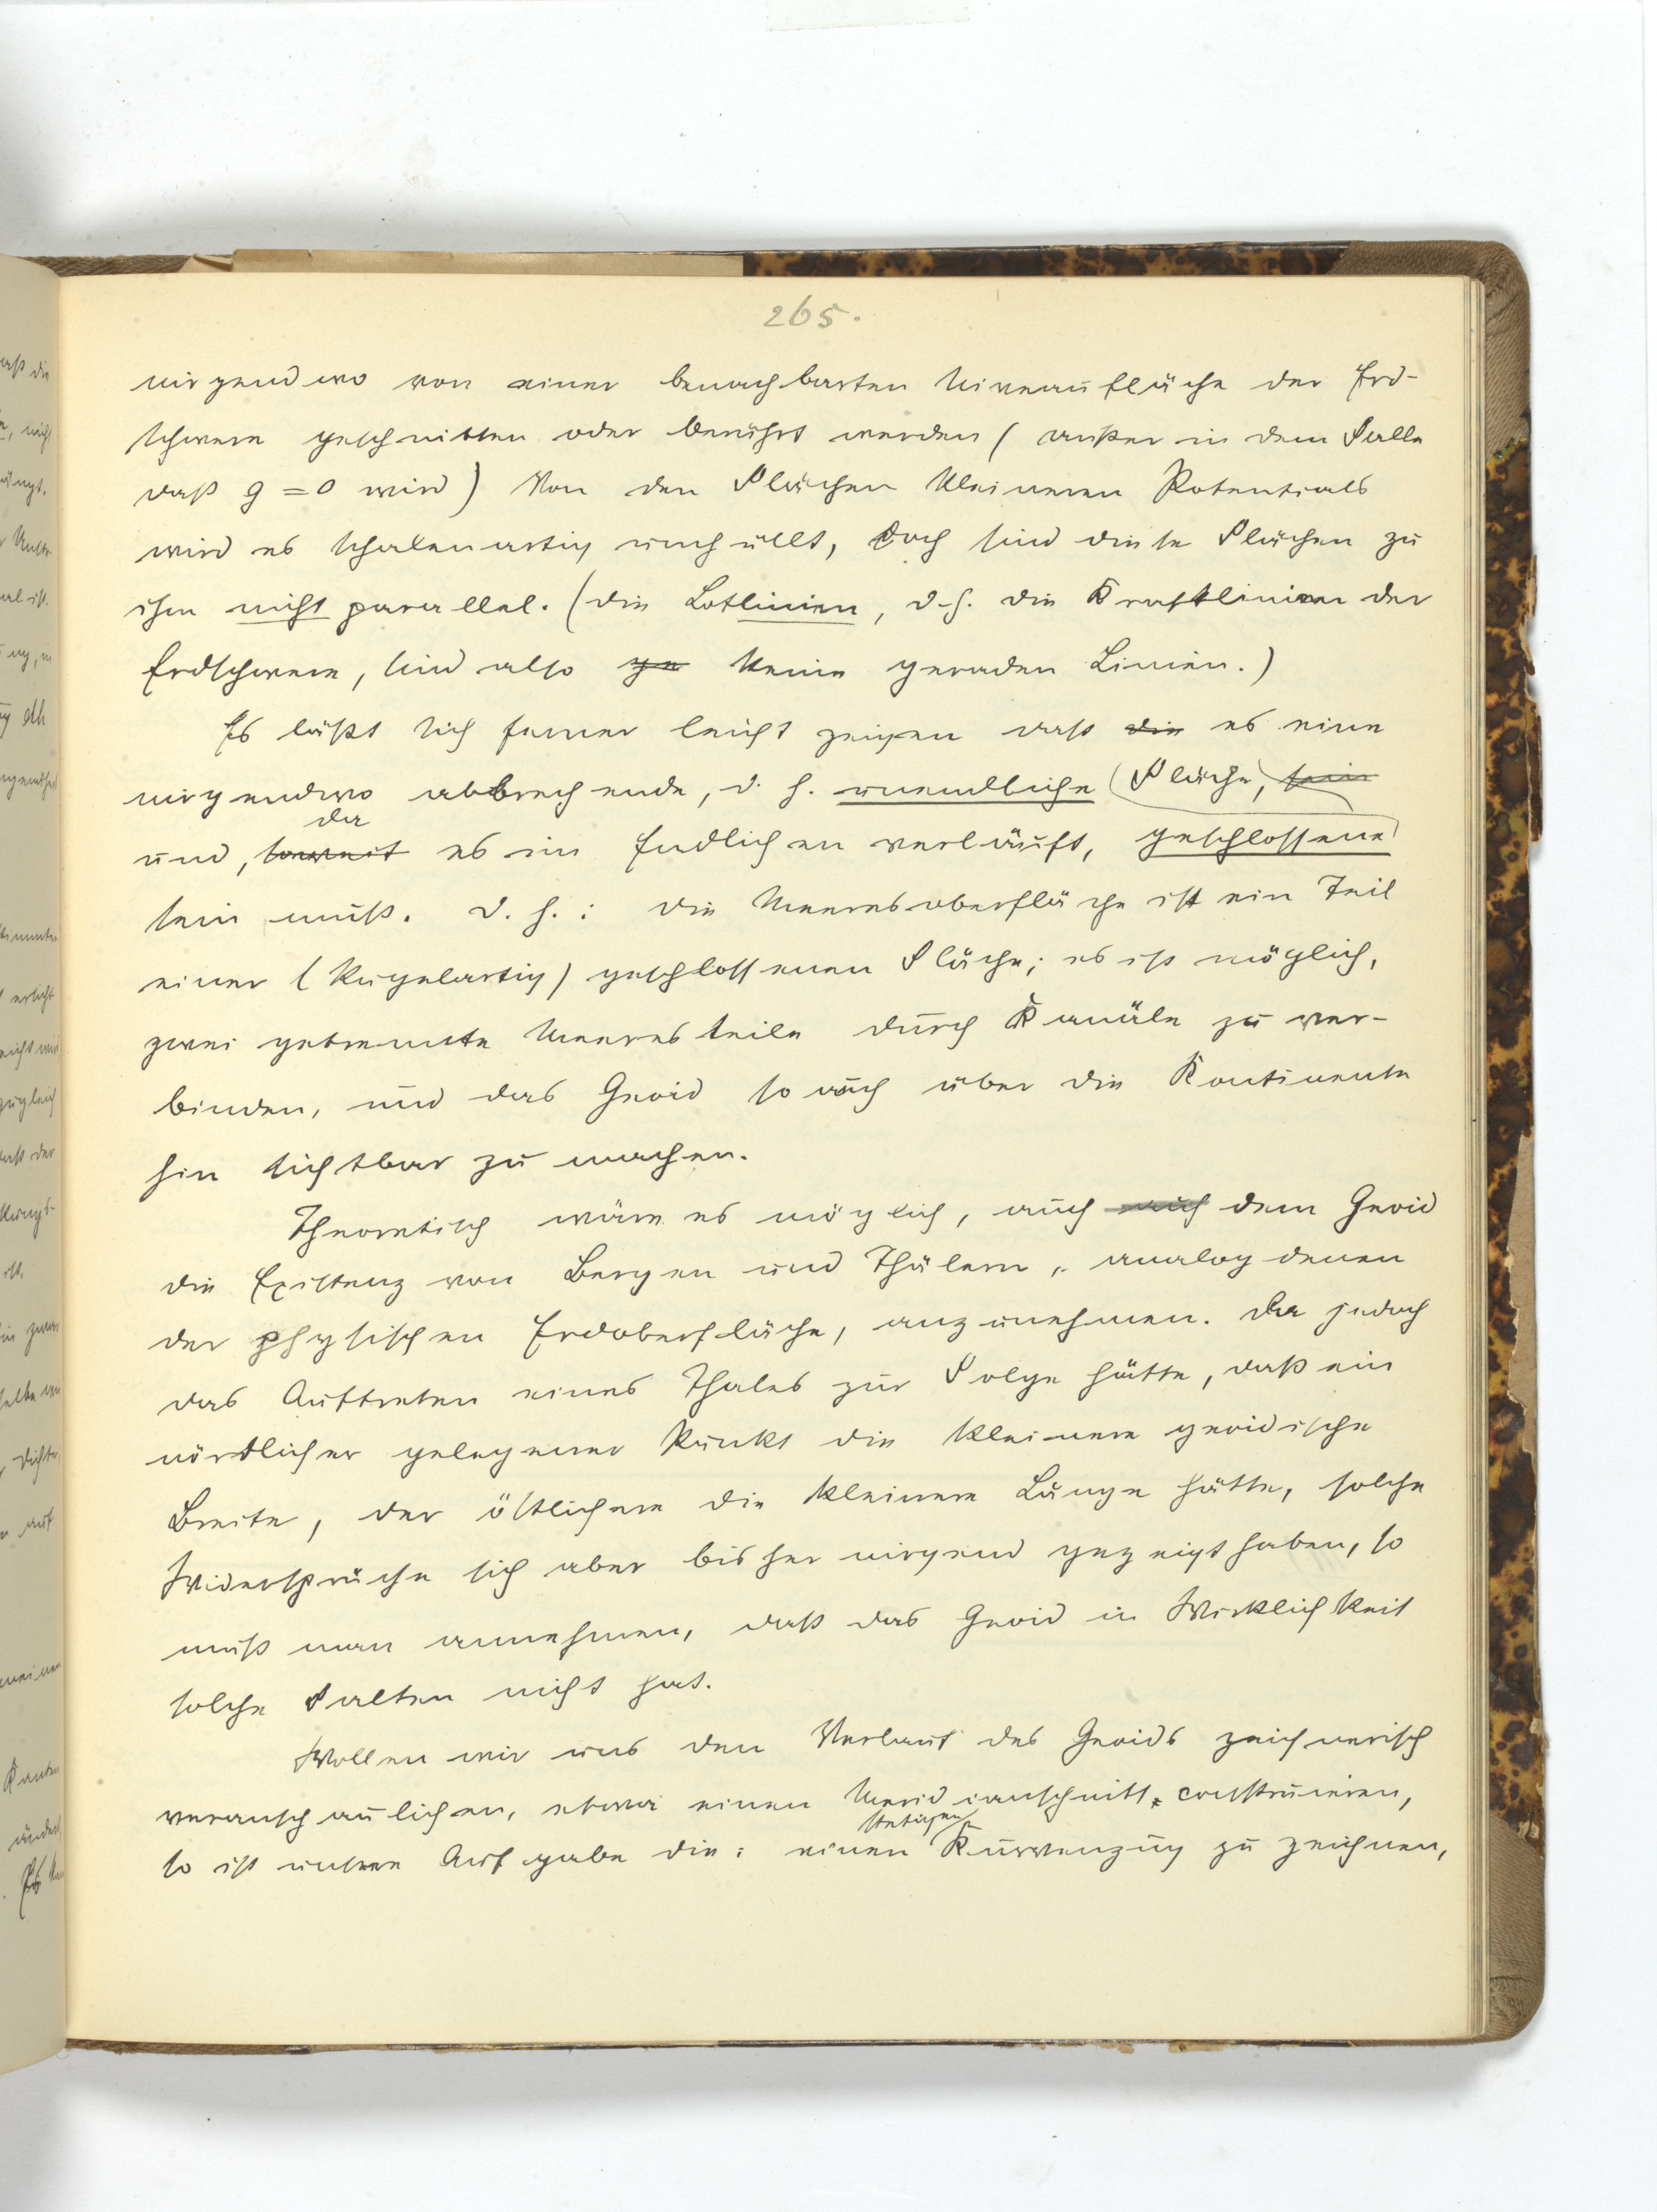 265.
nirgendwo von einer benachbarten Niveaufläche der Erd-
schwere geschnitten oder berührt werden (außer in dem Falle
daß g = 0 wird) Von den Flächen kleineren Potentials
wird es schalenartig umhüllt, doch sind diese Flächen zu
ihm nicht parallel. (die Lotlinien, d.h. die Kraftlinien der
Erdschwere, sind also ge keine geraden Linien.)
Es läßt sich ferner leicht zeigen daß die es eine
nirgendwo abbrechende, d. h. unendliche (Fläche,) sein
da
und, soweit es im Endlichen verläuft, geschlossene
sein muß. D. h.: die Meeresoberfläche ist ein Teil
einer (kugelartig) geschlossenen Fläche; es ist möglich,
zwei getrennte Meeresteile durch Kanäle zu ver-
binden, und das Geoid so auch über die Kontinente
hin sichtbar zu machen.
Theoretisch wäre es möglich, auch auch dem Geoid
die Existenz von Bergen und Thälern, analog denen
der physischen Erdoberfläche, anzunehmen. Da jedoch
das Auftreten eines Thales zur Folge hätte, daß ein
nördlicher gelegener Punkt die kleinere geoidische
Breite, der östlichere die kleinere Länge hätte, solche
Widersprüche sich aber bisher nirgend gezeigt haben, so
muß man annehmen, daß das Geoid in Wirklichkeit
solche Falten nicht hat.
Wollen wir uns den Verlauf des Geoids zeichnerisch
veranschaulichen, etwa einen Meridianschnitt construieren,
stetigen
so ist unsere Aufgabe die: einen Kurvenzug zu zeichnen,